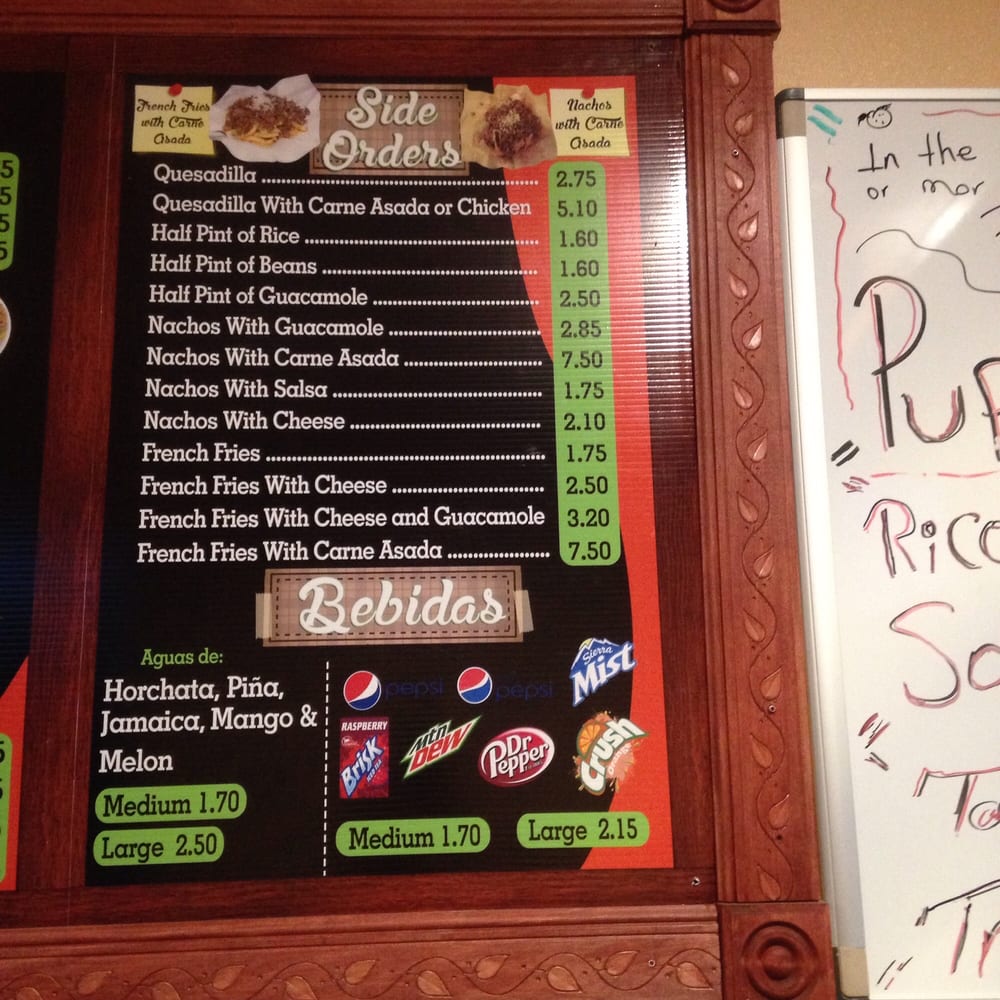 French Fries
with Carne
Asada
Side
Orders
Nachos
with Carne
Asada
Quesadilla 2.75
Quesadilla With Carne Asada or Chicken 5.10
Half Pint of Rice 1.60
Half Pint of Beans 1.60
Half Pint of Guacamole 2.50
Nachos With Guacamole 2.85
Nachos With Carne Asada 7.50
Nachos With Salsa 1.75
Nachos With Cheese 2.10
French Fries 1.75
French Fries With Cheese 2.50
French Fries With Cheese and Guacamole 3.20
French Fries With Carne Asada 7.50
Bebidas
Aguas de:
Horchata, Piña,
Jamaica, Mango &
Melon
Medium 1.70
Large 2.50
pepsi
pepsi
Sierra
Mist
RASPBERRY
Brisk
mtn
DEW
Dr
Pepper
Crush
Medium 1.70
Large 2.15
In the
or mor
Pup
Rice
So
Ta
Tr